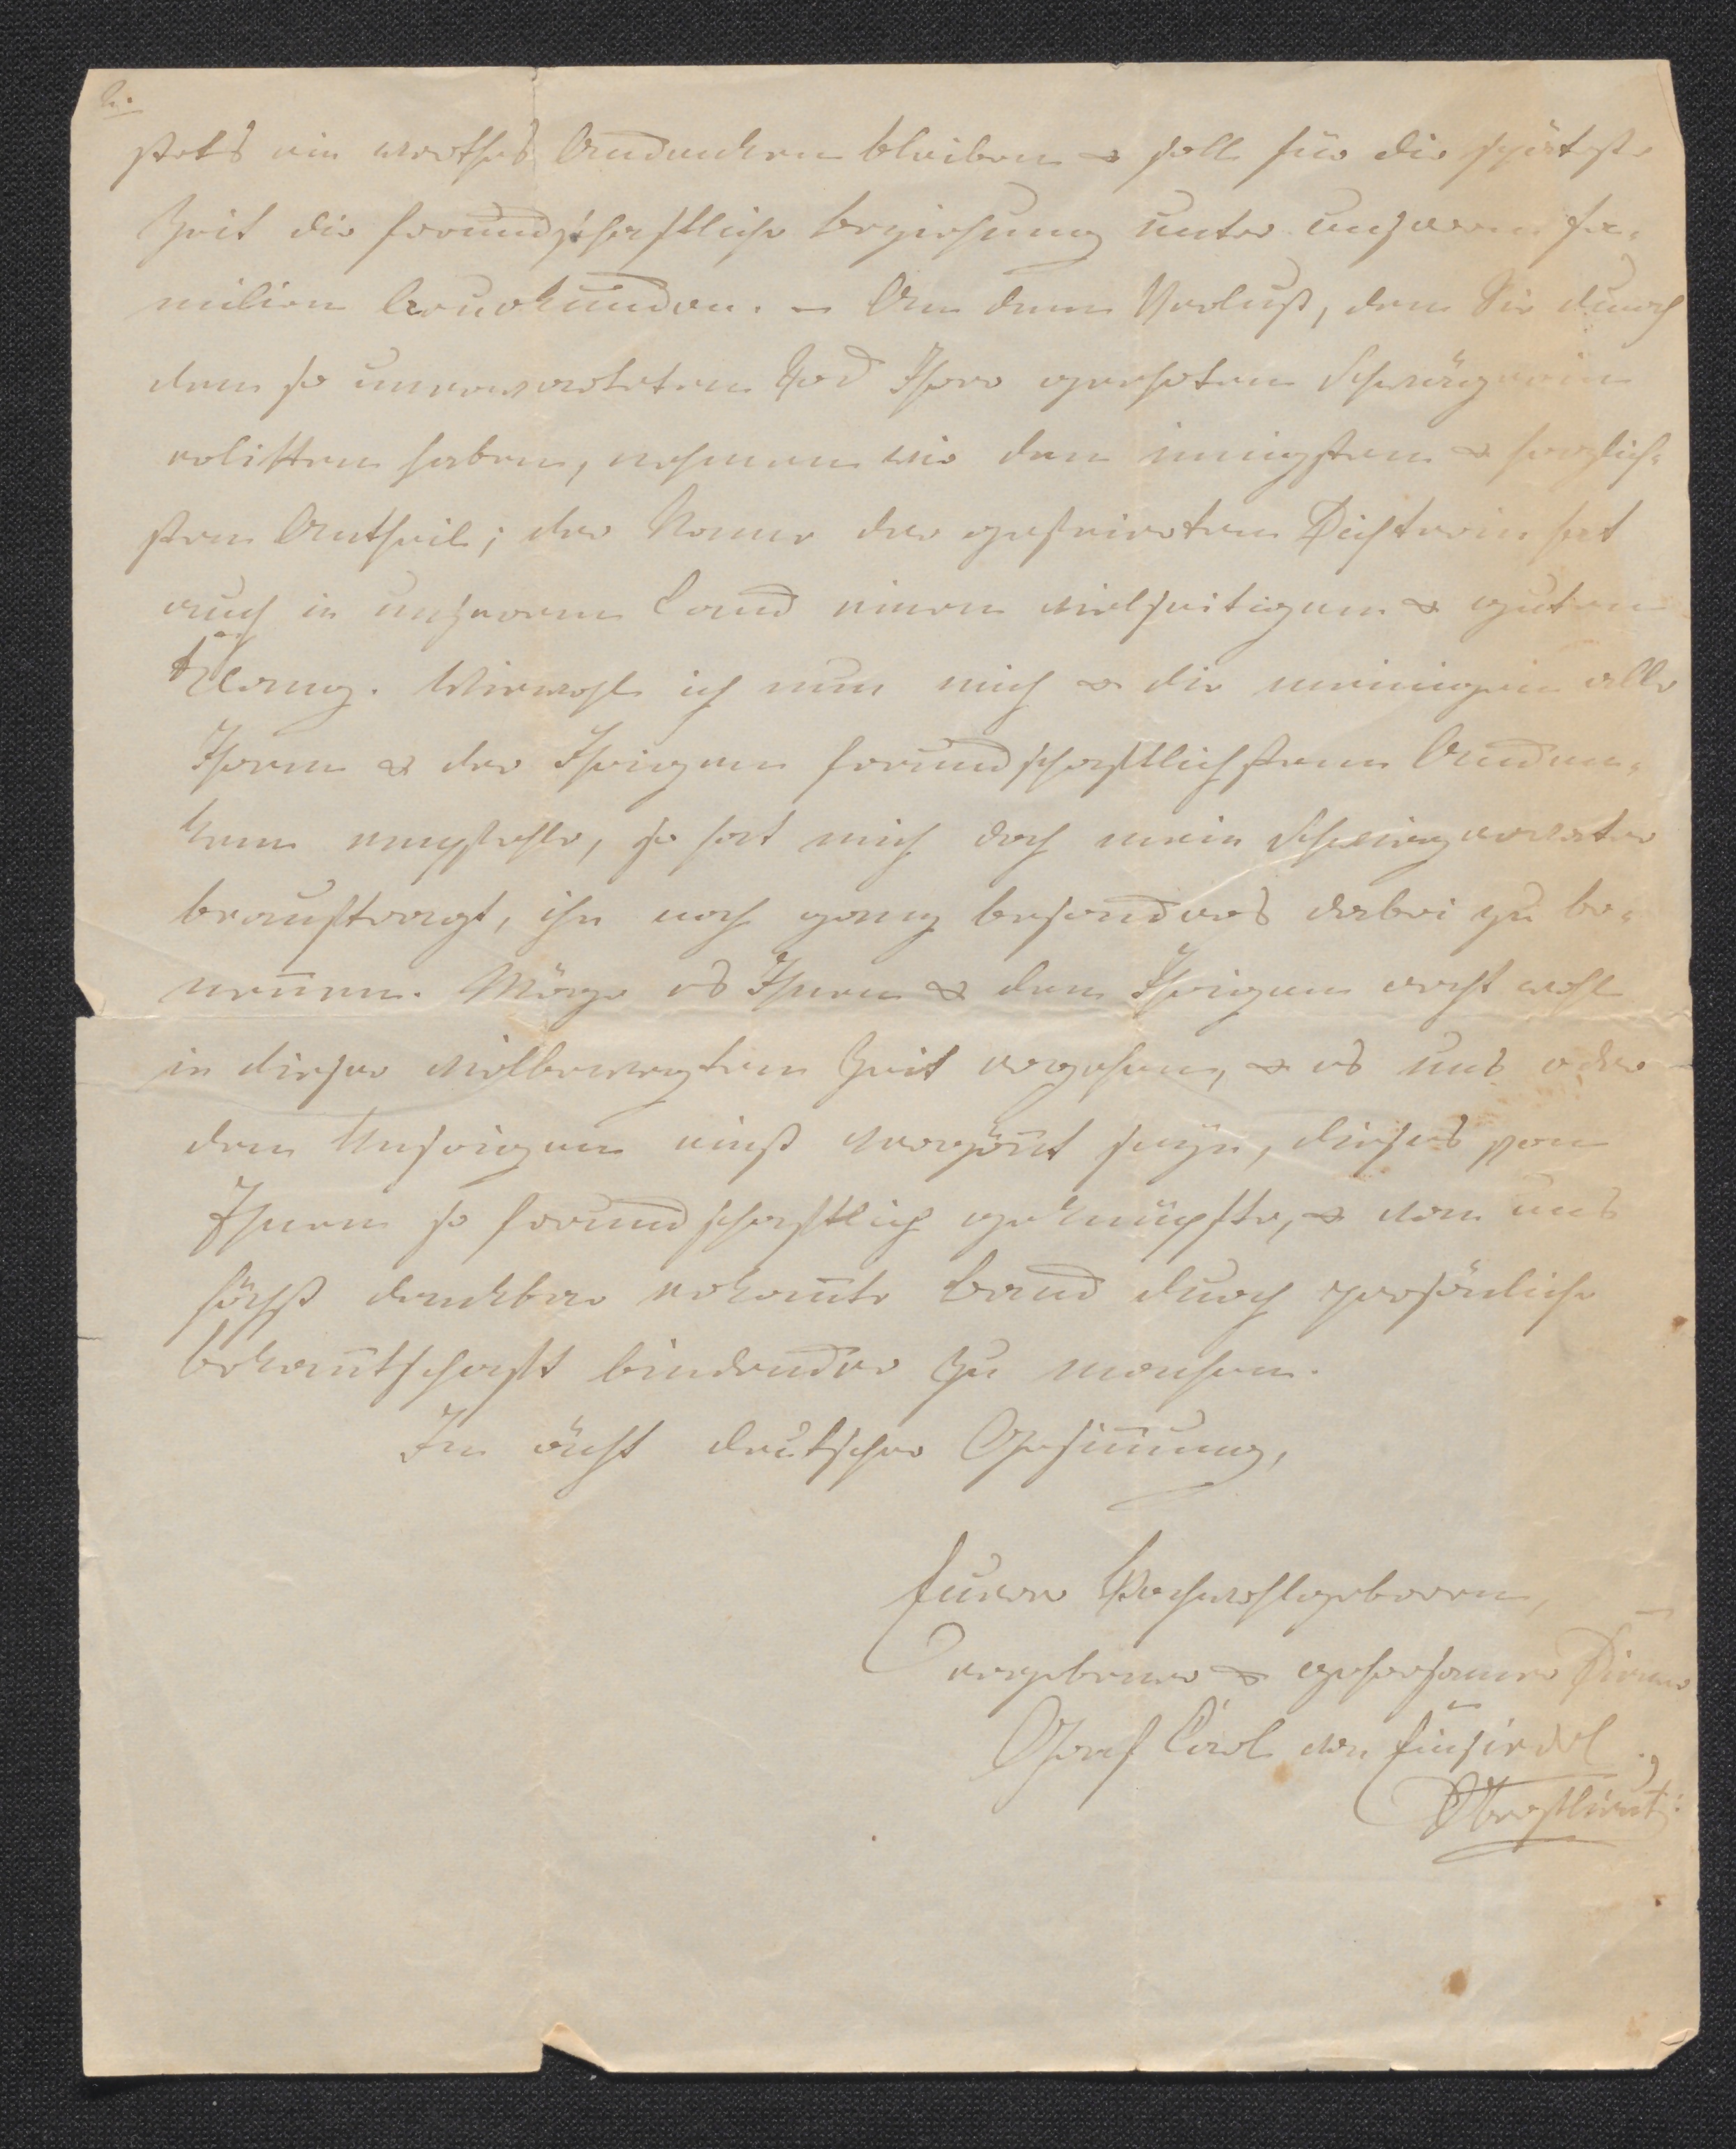 2.
stets ein werthes Andenken bleiben & soll für die späteste
Zeit die freundschaftliche Beziehung unter unseren Fa-
milien beurkunden. – An dem Verlust, den Sie durch
den so unerwarteten Tod Ihrer geehrten Schwägerin
erlitten haben, nehmen wir den innigsten & herzlich-
sten Antheil; der Name der gefeierten Dichterin hat
auch in unserem Land einen vielseitigen & guten
Klang. Wiewohl ich nun mich & die meinigen alle
Ihrem & der Ihrigen freundschaftlichsten Anden-
ken empfehle, so hat mich doch mein Schwiegervater
beauftragt, ihn noch ganz besonders dabei zu be-
neñen. Möge es Ihnen & den Ihrigen recht wohl
in dieser vielbewegten Zeit ergehen, & es uns oder
den Unsrigen einst vergöñt seyn, dieses von
Ihnen so freundschaftlich geknüpfte, & von uns
höchst dankbar erkañte Band durch persönliche
Bekañtschaft bindender zu machen.
In ächt deutscher Gesiñung,
Eurer Hochwohlgeboren,
ergebener & gehorsamer Diener
Graf Carl von Eiñsiedel,
Oberstlieut: